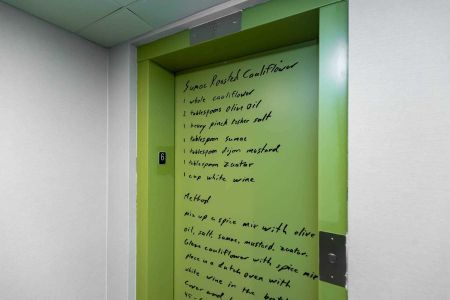 Sumac Roasted Cauliflower
1 whole cauliflower
2 tablespoons olive oil
1 heavy pinch kosher salt
1 tablespoon sumac
1 tablespoon dijon mustard
1 tablespoon zaatar
1 cup white wine
6
Method
mix up a spice mix with olive
oil, salt, sumac, mustard, zaatar.
Glaze cauliflower with spice mix
place in a dutch oven with
white wine in the bottom
Cover and
45